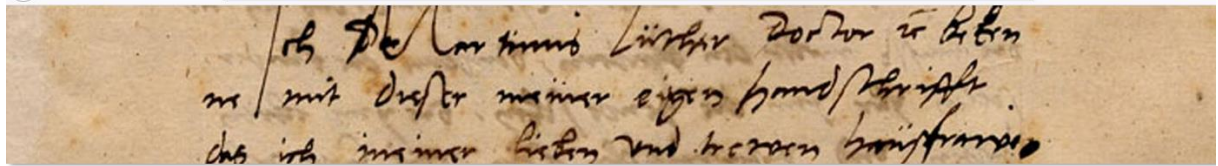 Ich Martinus Luther Doctor ꝛc beken
ne mit dieser meiner eigen handschrifft
das ich meiner lieben und trewen hausfrawen